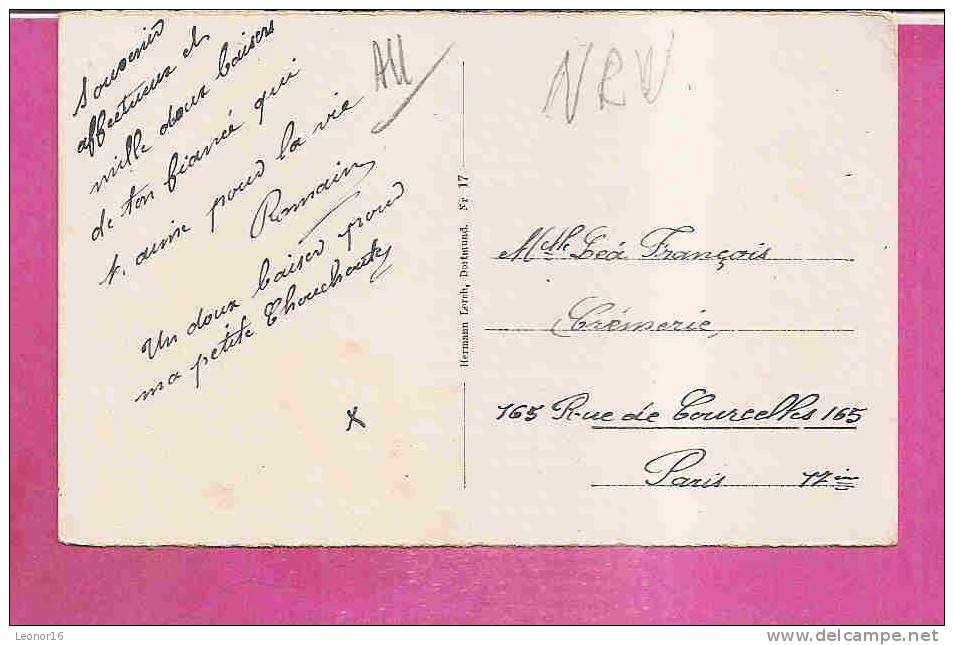 Souvenir
affectueux et
mille doux baisers
de ton fiancé qui
t. aime pour la vie
Romain
Un doux baiser pour
ma petite Chouchoute
x
All
Hermann Lorch, Dortmund. Nr 17
NRW.
Melle Léa François
Crémerie,
165 Rue de Courcelles 165
Paris 17 ième
Leonor16
www.delcampe.net